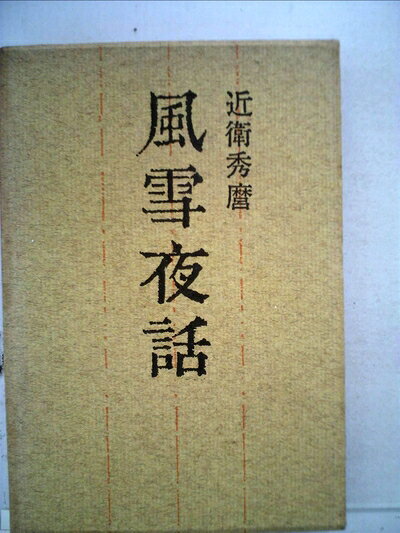 近衛秀麿
風雪夜話